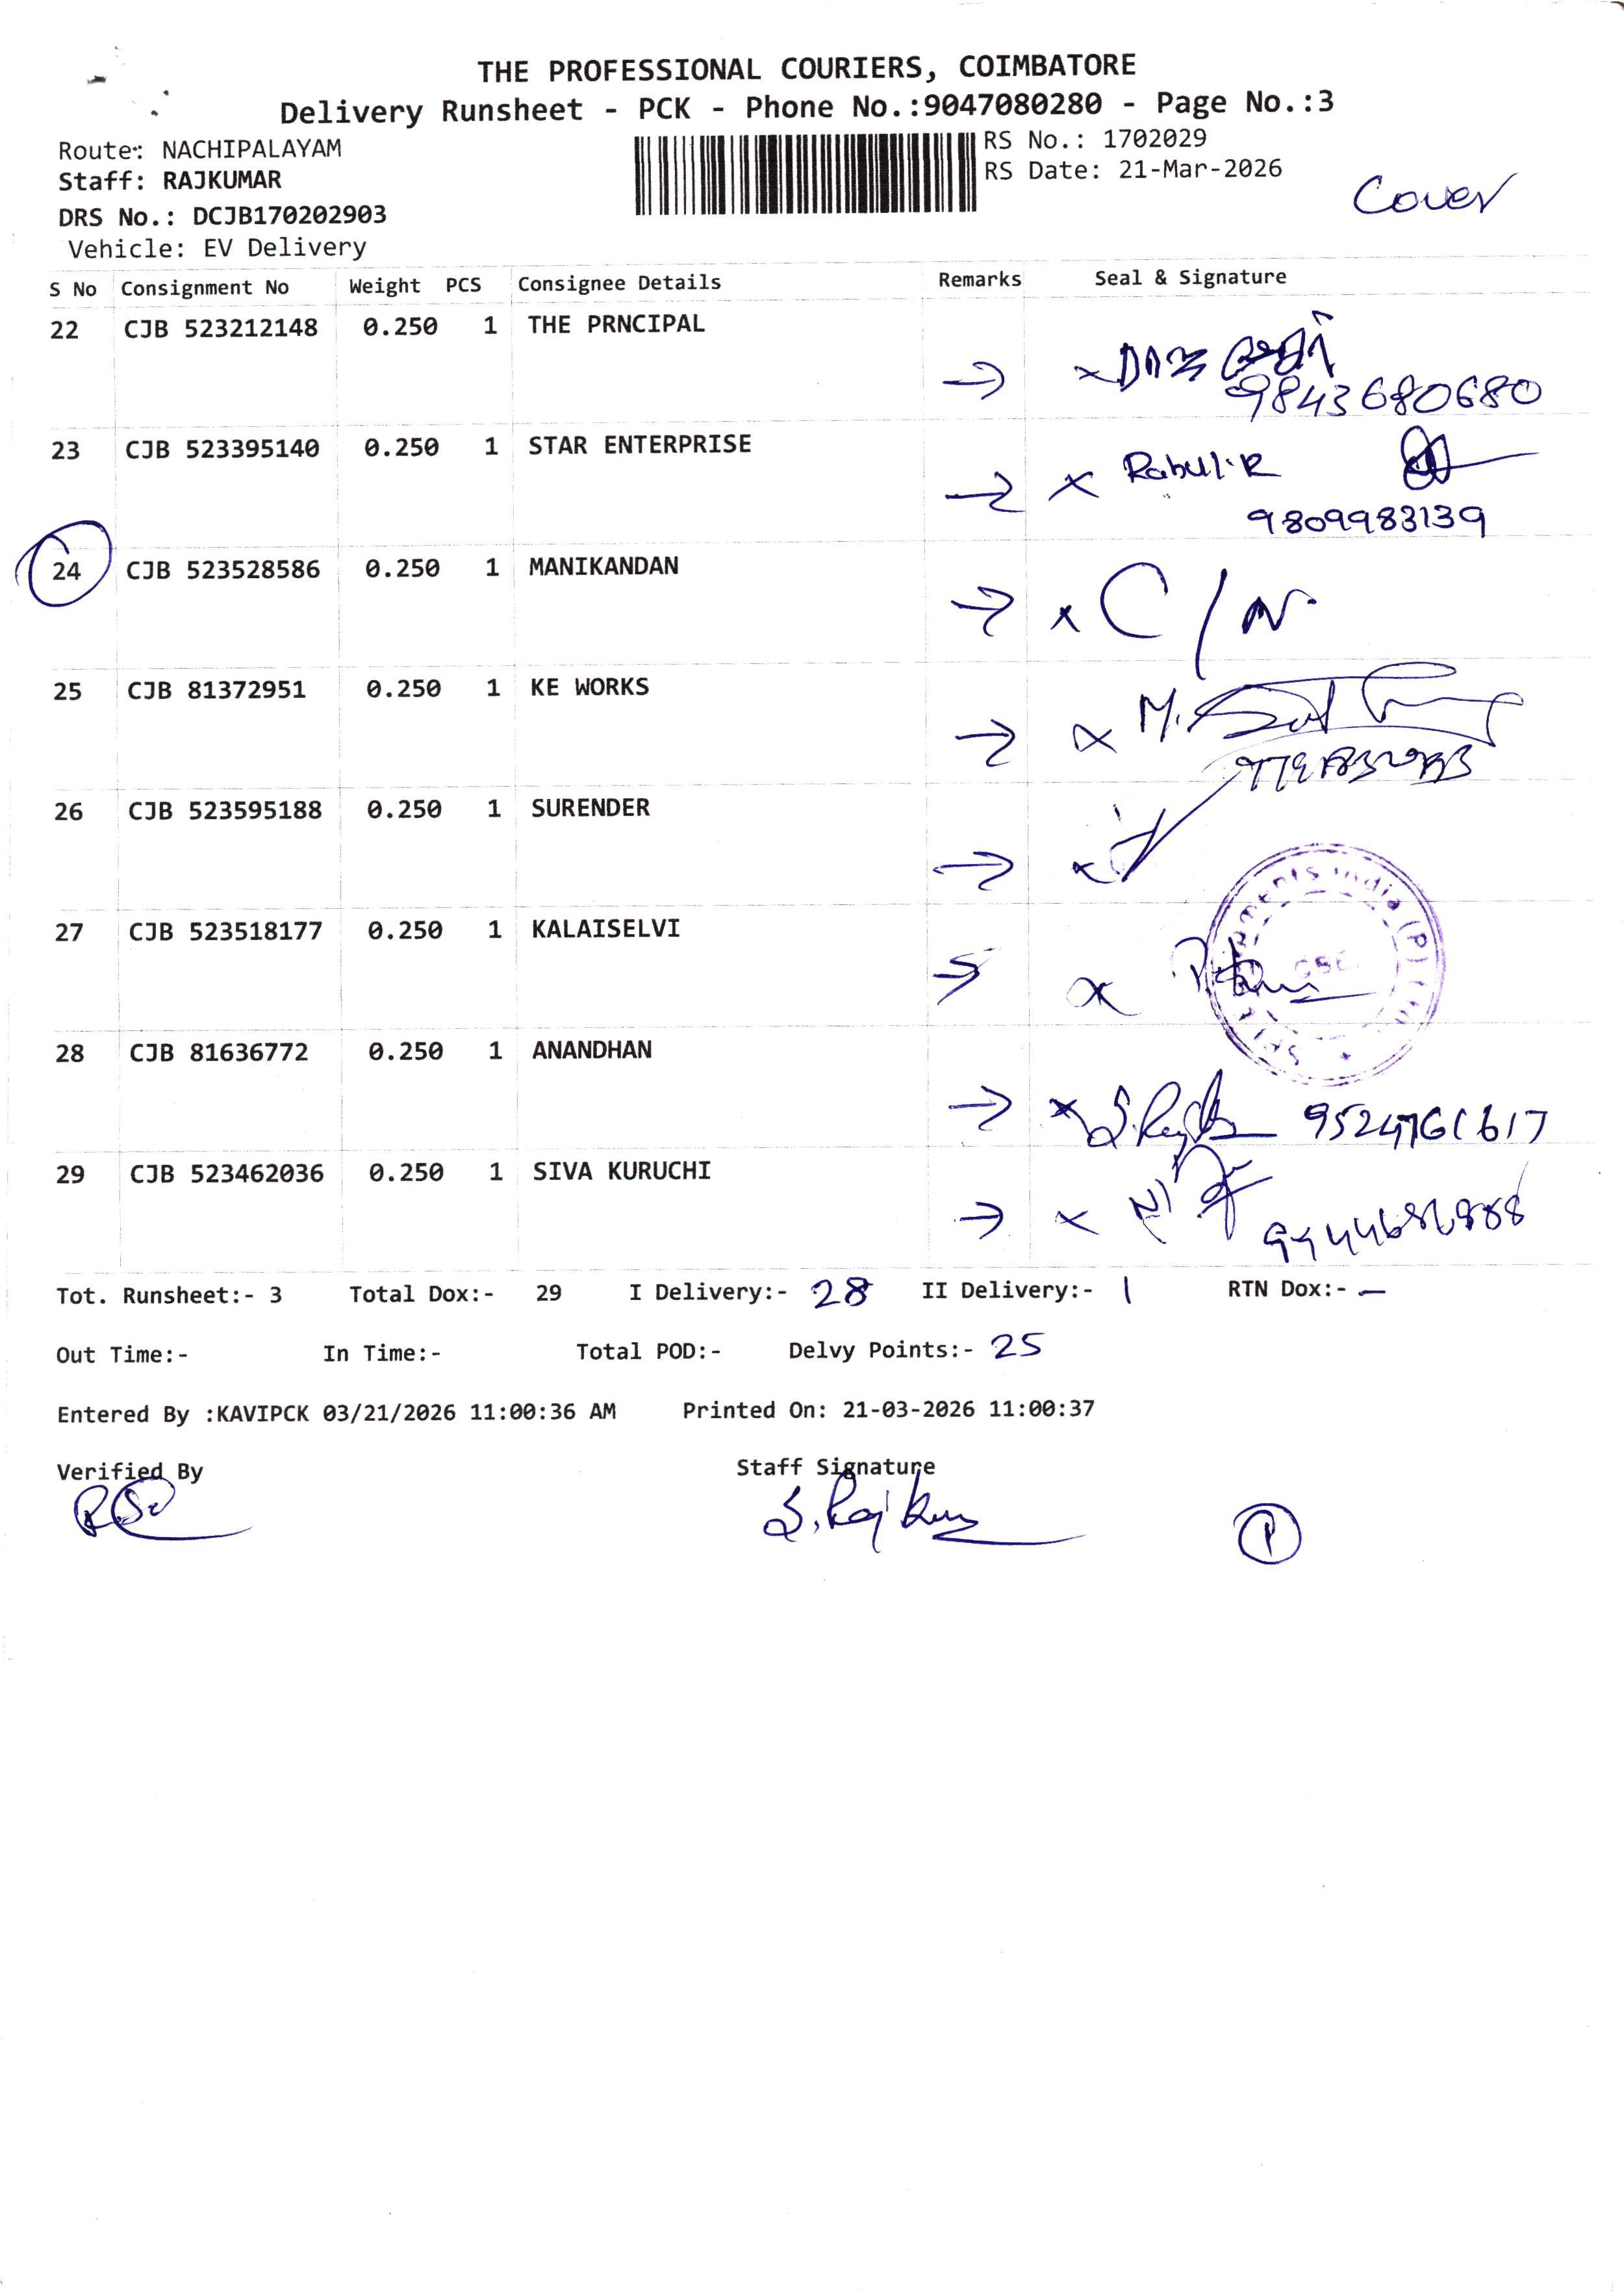 THE PROFESSIONAL COURIERS, COIMBATORE
Delivery Runsheet - PCK - Phone No.:9047080280 - Page No.:3
Route: NACHIPALAYAM
Staff: RAJKUMAR
DRS No.: DCJB170202903
Vehicle: EV Delivery
RS No.: 1702029
RS Date: 21-Mar-2026
Cover
S No Consignment No Weight PCS Consignee Details Remarks Seal & Signature
22 CJB 523212148 0.250 1 THE PRNCIPAL
9843680680
23 CJB 523395140 0.250 1 STAR ENTERPRISE Rahul.R
9809983139
24 CJB 523528586 0.250 1 MANIKANDAN C/N
25 CJB 81372951 0.250 1 KE WORKS M.
26 CJB 523595188 0.250 1 SURENDER
27 CJB 523518177 0.250 1 KALAISELVI
India (P) Ltd
CBE
28 CJB 81636772 0.250 1 ANANDHAN
29 CJB 523462036 0.250 1 SIVA KURUCHI
Tot. Runsheet:- 3 Total Dox:- 29 I Delivery:- 28 II Delivery:- 1 RTN Dox:- —
Out Time:- In Time:- Total POD:- Delvy Points:- 25
Entered By :KAVIPCK 03/21/2026 11:00:36 AM Printed On: 21-03-2026 11:00:37
Verified By Staff Signature
S. Rajkum